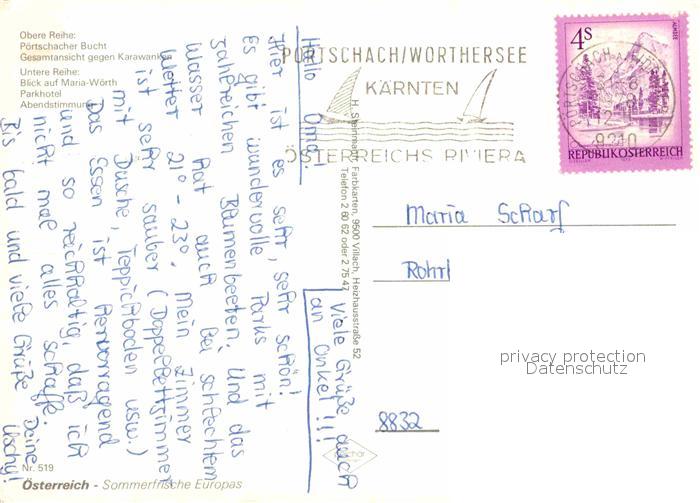 Obere Reihe:
Pörtschacher Bucht
Gesamtansicht gegen Karawanken
Untere Reihe:
Blick auf Maria-Wörth
Parkhotel
Abendstimmung
Hallo Oma!
Hier ist es sehr, sehr schön!
Es gibt wundervolle Parks mit
zahlreichen Blumenbeeten. Und das
Wasser hat auch bei schlechtem
Wetter 21° - 23°. Mein Zimmer
ist sehr sauber (Doppelbettzimmer
mit Dusche, Teppichboden usw.)
Das Essen ist hervorragend
und so reichhaltig, daß ich
nicht mal alles schaffe.
Bis bald und viele Grüße Deine
Uschy!
viele Grüße auch
an Onkel!!!
Nr. 519
Österreich - Sommerfrische Europas
H. Steinmann, Farbkarten, 9500 Villach, Heizhausstraße 52
Telefon 2 60 62 oder 2 75 47
PÖRTSCHACH/WÖRTHERSEE
KÄRNTEN
ÖSTERREICHS RIVIERA
4S
ALMSEE
9210
REPUBLIK ÖSTERREICH
Maria Scharf
Rohrl
8832
privacy protection
Datenschutz